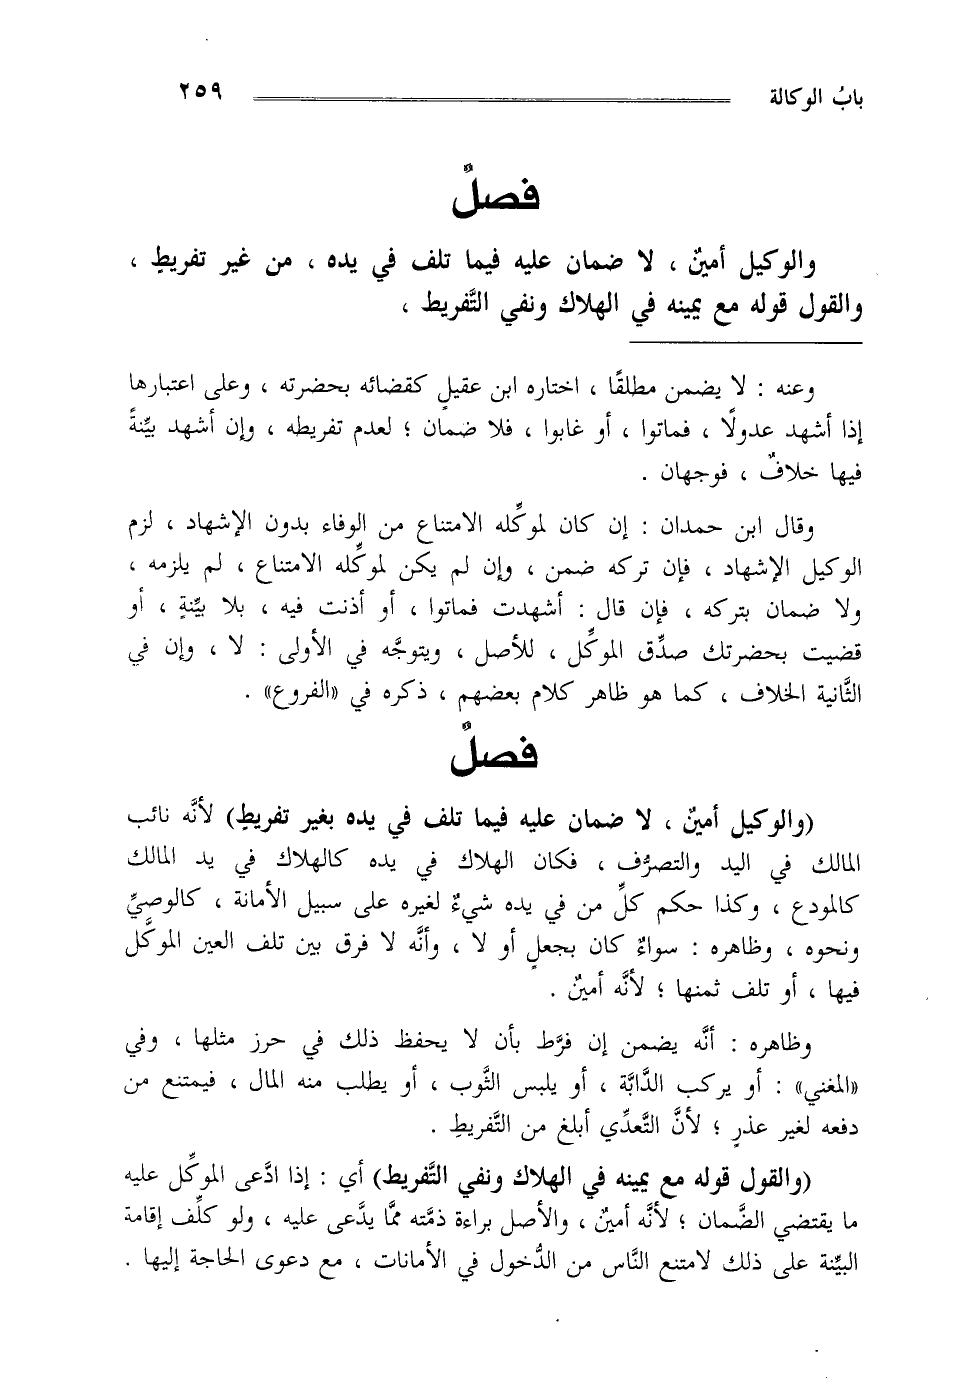 بابُ الوكالة ٢٥٩
فصلٌ
والوكيل أمينٌ ، لا ضمان عليه فيما تلف في يده ، من غير تفريطٍ ،
والقول قوله مع يمينه في الهلاك ونفي التَّفريط ،
وعنه : لا يضمن مطلقًا ، اختاره ابن عقيلٍ كقضائه بحضرته ، وعلى اعتبارها
إذا أشهد عدولًا ، فماتوا ، أو غابوا ، فلا ضمان ؛ لعدم تفريطه ، وإن أشهد بيِّنةً
فيها خلافٌ ، فوجهان .
وقال ابن حمدان : إن كان لموكِّله الامتناع من الوفاء بدون الإشهاد ، لزم
الوكيل الإشهاد ، فإن تركه ضمن ، وإن لم يكن لموكِّله الامتناع ، لم يلزمه ،
ولا ضمان بتركه ، فإن قال : أشهدت فماتوا ، أو أذنت فيه ، بلا بيِّنةٍ ، أو
قضيت بحضرتك صدِّق الموكِّل ، للأصل ، ويتوجَّه في الأولى : لا ، وإن في
الثَّانية الخلاف ، كما هو ظاهر كلام بعضهم ، ذكره في «الفروع» .
فصلٌ
(والوكيل أمينٌ ، لا ضمان عليه فيما تلف في يده بغير تفريطٍ) لأنَّه نائب
المالك في اليد والتصرُّف ، فكان الهلاك في يده كالهلاك في يد المالك
كالمودع ، وكذا حكم كلِّ من في يده شيءٌ لغيره على سبيل الأمانة ، كالوصيِّ
ونحوه ، وظاهره : سواءٌ كان بجعلٍ أو لا ، وأنَّه لا فرق بين تلف العين الموكَّل
فيها ، أو تلف ثمنها ؛ لأنَّه أمينٌ .
وظاهره : أنَّه يضمن إن فرَّط بأن لا يحفظ ذلك في حرز مثلها ، وفي
«المغني» : أو يركب الدَّابَّة ، أو يلبس الثَّوب ، أو يطلب منه المال ، فيمتنع من
دفعه لغير عذرٍ ؛ لأنَّ التَّعدِّي أبلغ من التَّفريطِ .
(والقول قوله مع يمينه في الهلاك ونفي التَّفريط) أي : إذا ادَّعى الموكِّل عليه
ما يقتضي الضَّمان ؛ لأنَّه أمينٌ ، والأصل براءة ذمَّته ممَّا يدَّعى عليه ، ولو كلِّف إقامة
البيِّنة على ذلك لامتنع النَّاس من الدُّخول في الأمانات ، مع دعوى الحاجة إليها .